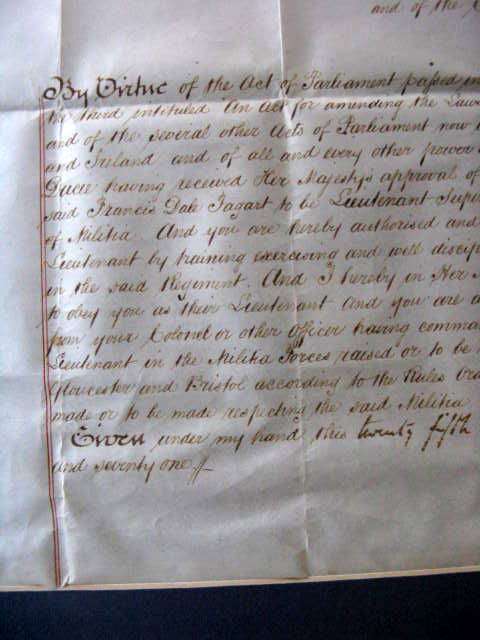 and of the
By Virtue of the Act of Parliament passed in
the third intituled An Act for amending the Laws
and of the several other Acts of Parliament now
and Ireland and of all and every other power
Ducie having received Her Majesty's approval of
said Francis Dale Tagart to be Lieutenant Super
of Militia. And you are hereby authorised and
Lieutenant by training exercising and well discip
in the said Regiment. And I hereby in Her
to obey you as their Lieutenant And you are
from your Colonel or other Officer having comma
Lieutenant in the Militia Forces raised or to be
Gloucester and Bristol according to the Rules
made or to be made respecting the said Militia
Given under my hand this twenty fifth
and seventy one